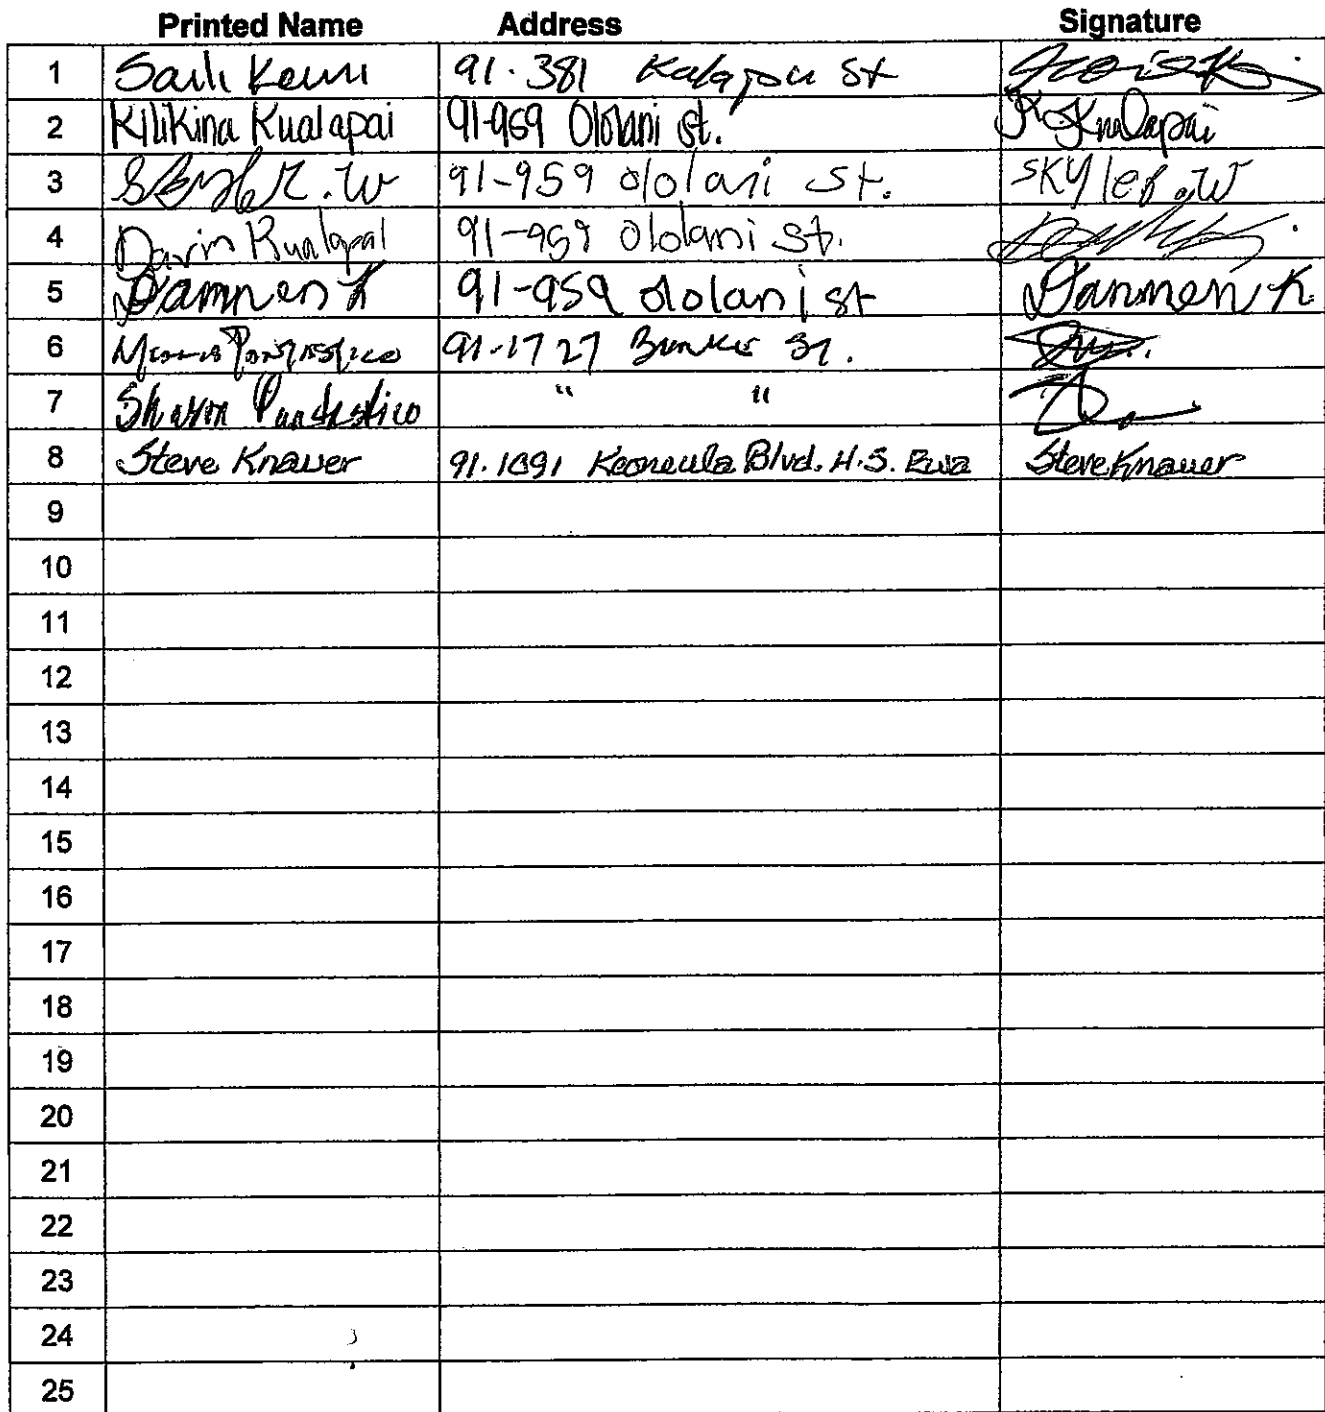 Printed Name Address Signature
1 Saili Keuni 91-381 Kalapu St
2 Kilikina Kualapai 91-959 Ololani st. K Kualapai
3 91-959 ololani st. SKYler.W
4 Darin Kualapai 91-959 Ololani st.
5 Danmen K 91-959 ololani st Danmen K
6 91-1727 Bunker St.
7 Sharon Pantastico " "
8 Steve Knauer 91.1091 Keoneula Blvd. H.S. Ewa Steve Knauer
9
10
11
12
13
14
15
16
17
18
19
20
21
22
23
24
25